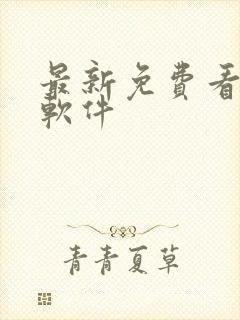 最新免費看
軟件
青青夏草